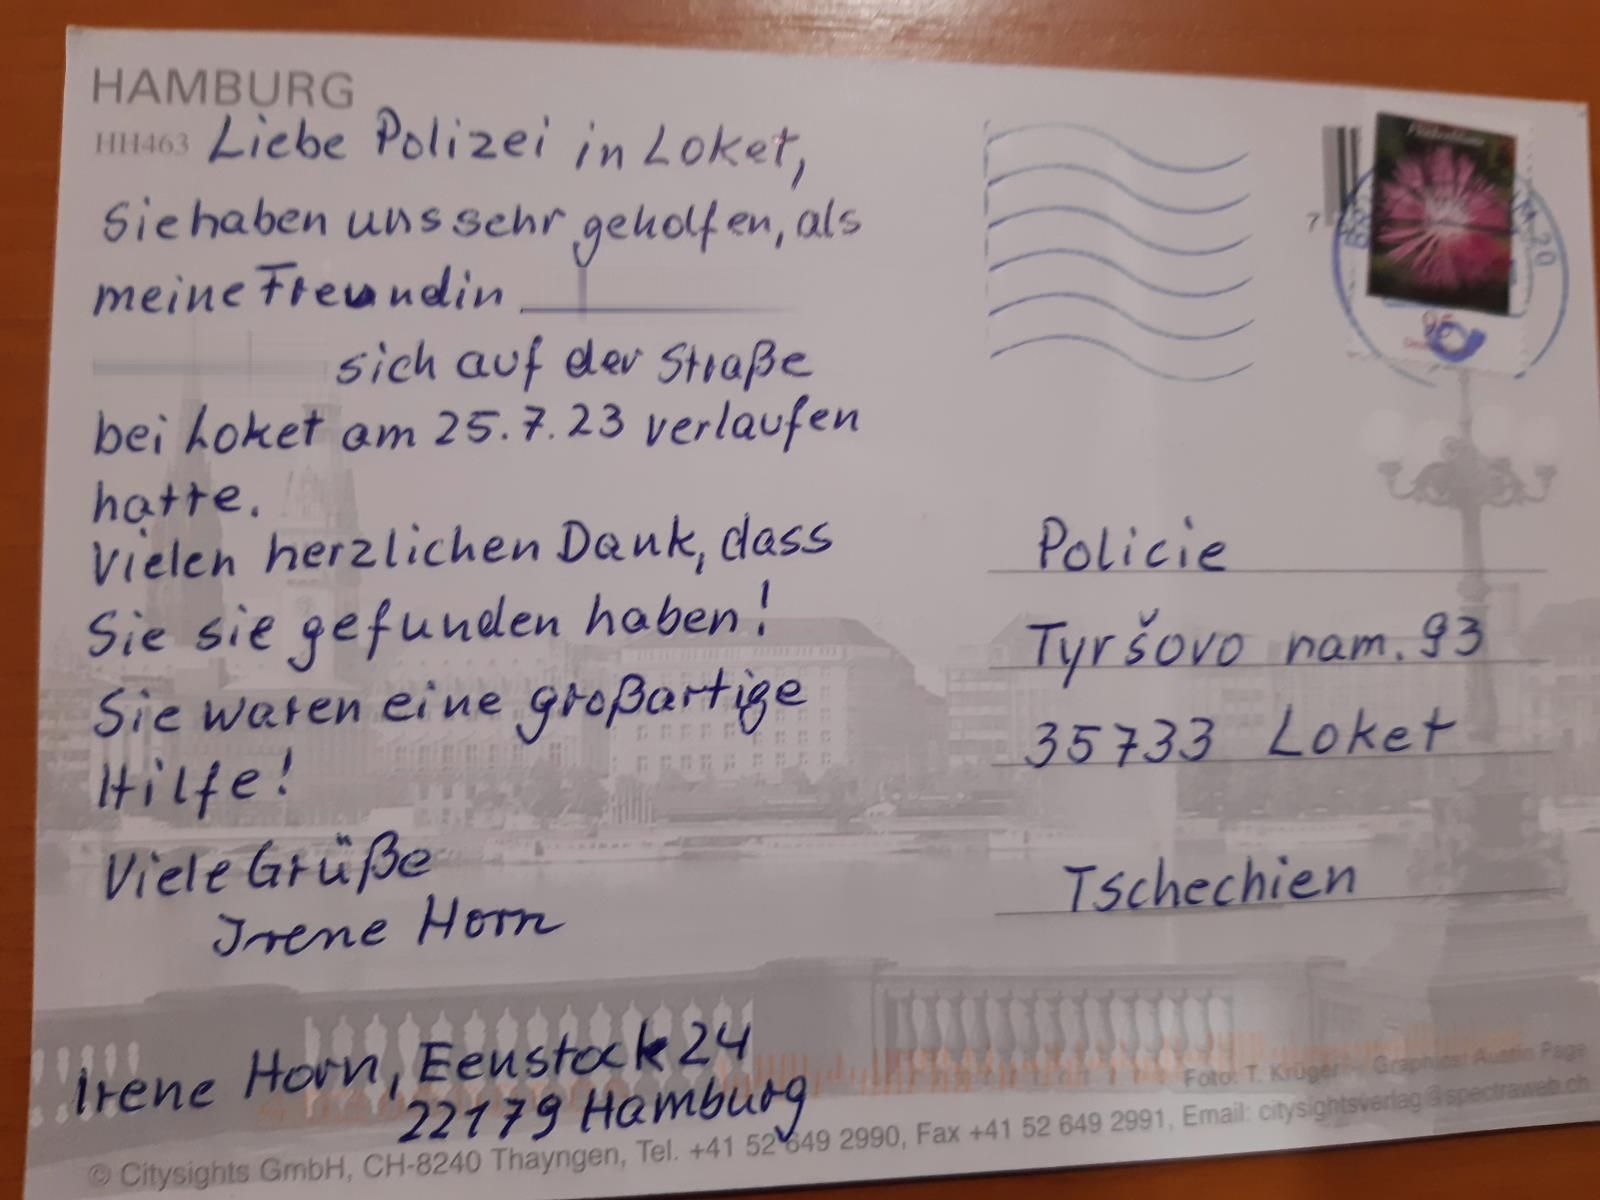 HAMBURG
HH463 Liebe Polizei in Loket,
Sie haben uns sehr geholfen, als
meine Freundin
sich auf der Straße
bei Loket am 25.7.23 verlaufen
hatte.
Vielen herzlichen Dank, dass
Sie sie gefunden haben!
Sie waren eine großartige
Hilfe!
Viele Grüße
Irene Horn
Irene Horn, Eenstock 24
22179 Hamburg
7
95
Policie
Tyršovo nam. 93
35733 Loket
Tschechien
Foto: T. Krüger Graphics: Austin Page
© Citysights GmbH, CH-8240 Thayngen, Tel. +41 52 649 2990, Fax +41 52 649 2991, Email: citysightsverlag@spectraweb.ch